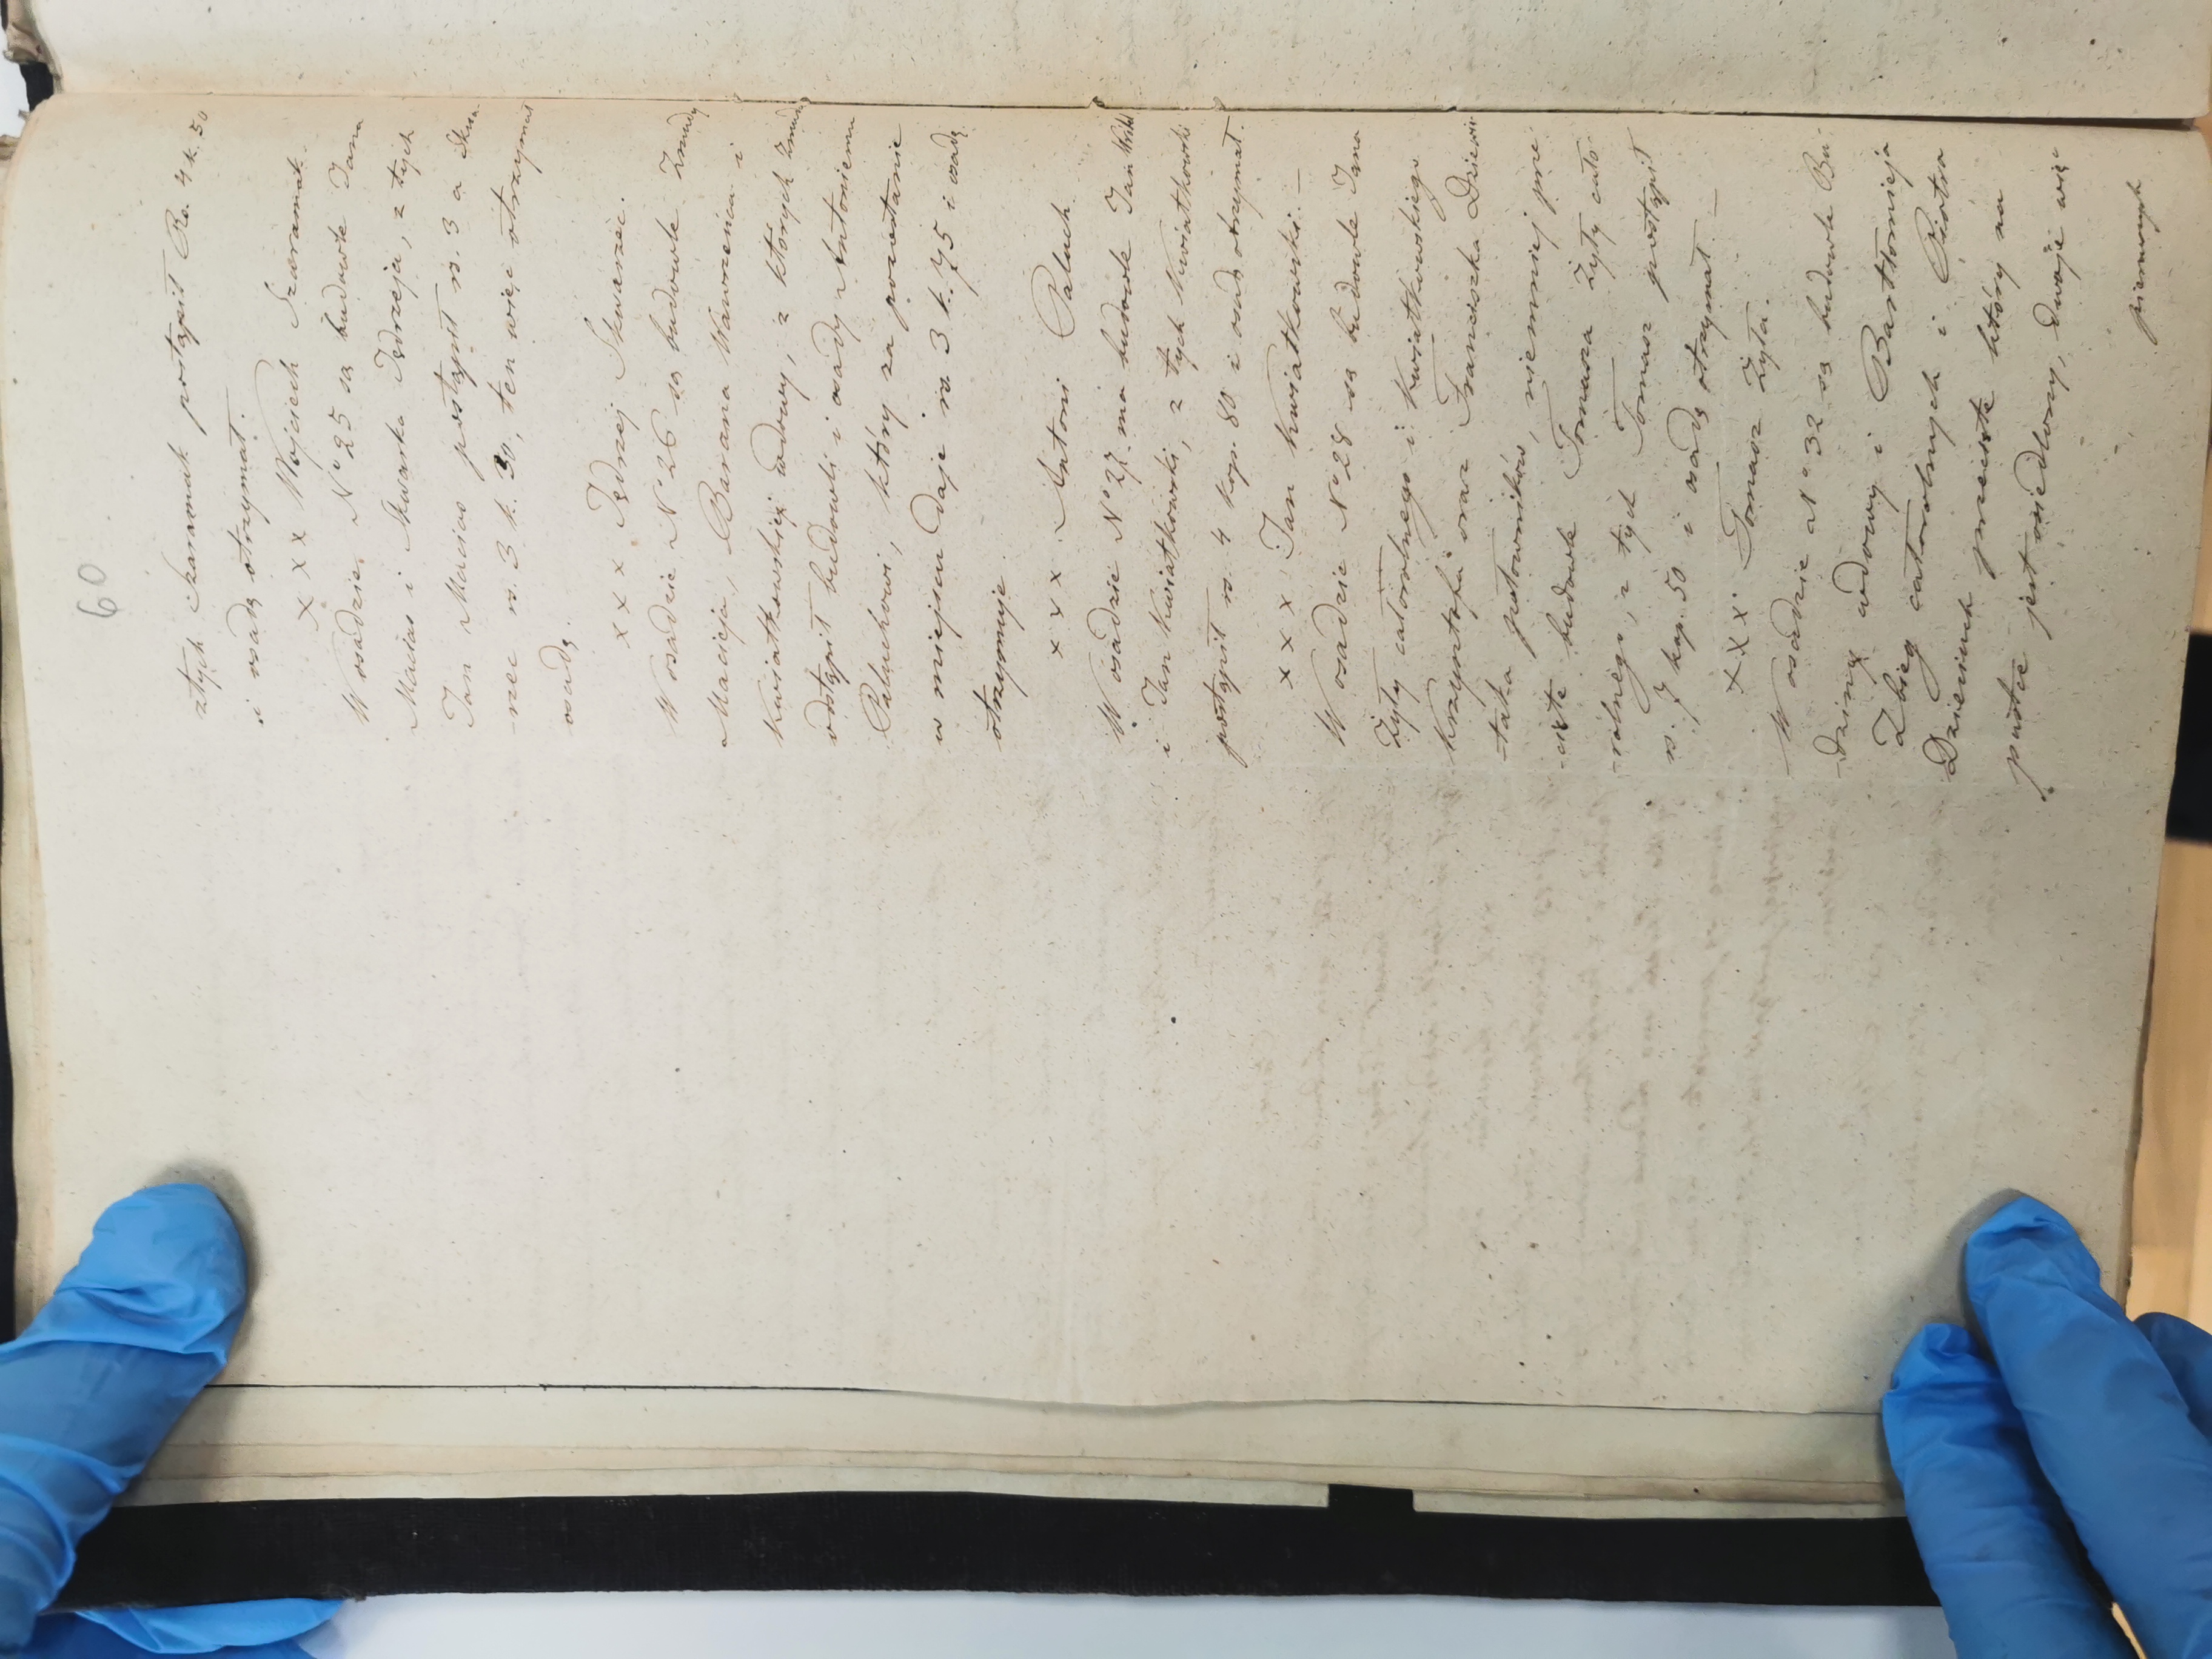 60
z tych Szaramak postąpił Rs. 4 k. 50
i osadę otrzymał.
x x x Wojciech Szaramak.
W osadzie N° 25 są budowle Jana
Macias i Skwarka Jędrzeja, z tych
Jan Macias postąpił rs. 3 a Skwa
rzec rs. 3 k. 30, ten więc otrzymał
osadę.
x x x Jędrzej Skwarzec.
W osadzie N° 26 są budowle Żmudy
Macieja, Barana Wawrzeńca i
Kwiatkowskiej wdowy, z których Żmuda
odstąpił budowli i osady Antoniemu
Paluchowi, który za pozostanie
w miejscu daje rs 3 k. 75 i osadę
otrzymuje.
x x x Antoni Paluch.
W osadzie N° 27. ma budowle Jan
i Jan Kwiatkowski, z tych Kwiatkowski
postąpił rs. 4 kop. 80 i osadę otrzymał.
x x x Jan Kwiatkowski. —
W osadzie N° 28 są budowle Jana
Żyły całorolnego i Kwiatkowskiego
Krzysztofa oraz Franciszka Dziewia
taka gustowników, niemniej prze
ciste budowle Tomasza Żyły cało-
rolnego, z tych Tomasz postąpił
rs. 7 kop. 50 i osadę otrzymał. —
x x x Tomasz Żyła.
W osadzie N° 32 są budowle Bu-
dziney wdowy i Bartłomieja
Zbieg całorolnych i Piotra
Dzieciuch który na
pustce jest osiedlony, dwoje więc
pierwszych